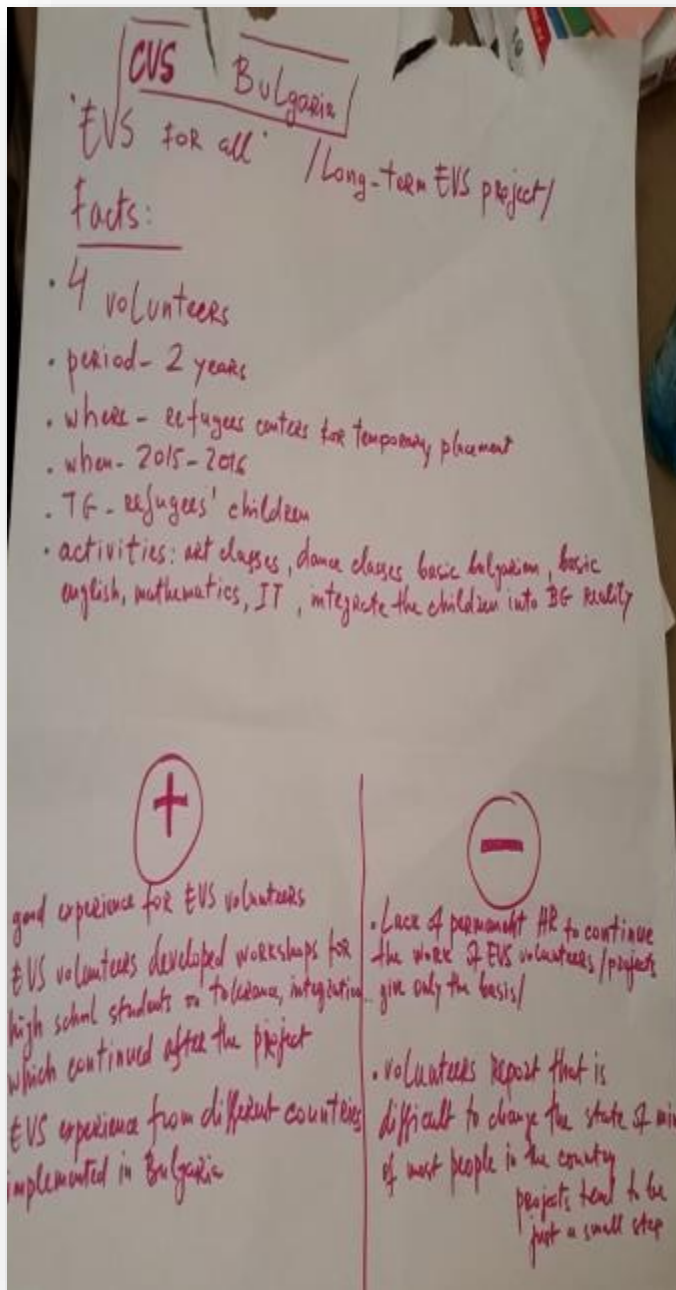 CVS Bulgaria
"EVS FOR all" /Long-term EVS project/
Facts:
• 4 volunteers
• period - 2 years
• where - refugees centers for temporary placement
• when - 2015-2016
• TG - refugees' children
• activities: art classes, dance classes basic bulgarian, basic
english, mathematics, IT, integrate the children into BG reality
+
good experience for EVS volunteers
EVS volunteers developed workshops for
high school students on tolerance, integration
which continued after the project
EVS experience from different countries
implemented in Bulgaria
−
• Lack of permanent HR to continue
the work of EVS volunteers /projects
give only the basis/
• volunteers report that is
difficult to change the state of min
of most people in the country
projects tend to be
just a small step